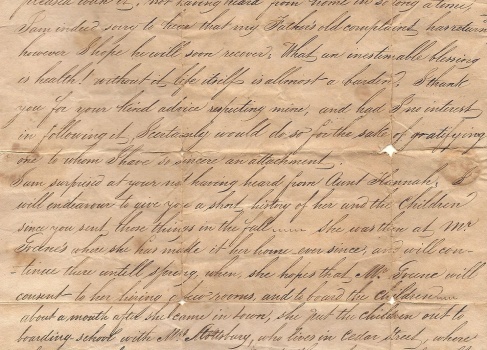 pleased with it, not having heard from home in so long a time,
I am indeed sorry to hear that my Father's old complaint has return
however I hope he will soon recover; What an inestimable blessing
is health! without it life itself is allmost a burden; I thank
you for your kind advice respecting mine, and had I no interest
in following it, I certainly would do so for the sake of gratifying
one to whom I have so sincere an attachment.
I am surprised at your not having heard from Aunt Hannah; I
will endeavour to give you a short history of her and the Children
since you sent those things in the fall she was then at Mr
where she has made it her home ever since, and will con-
-tinue there untill spring, when she hopes that Mr will
consent to her hiring a few rooms, and to board the Children
about a mouth after she came in town, she put the children out to
boarding-school with Mrs Stottsbury, who lives in Cedar Street, where